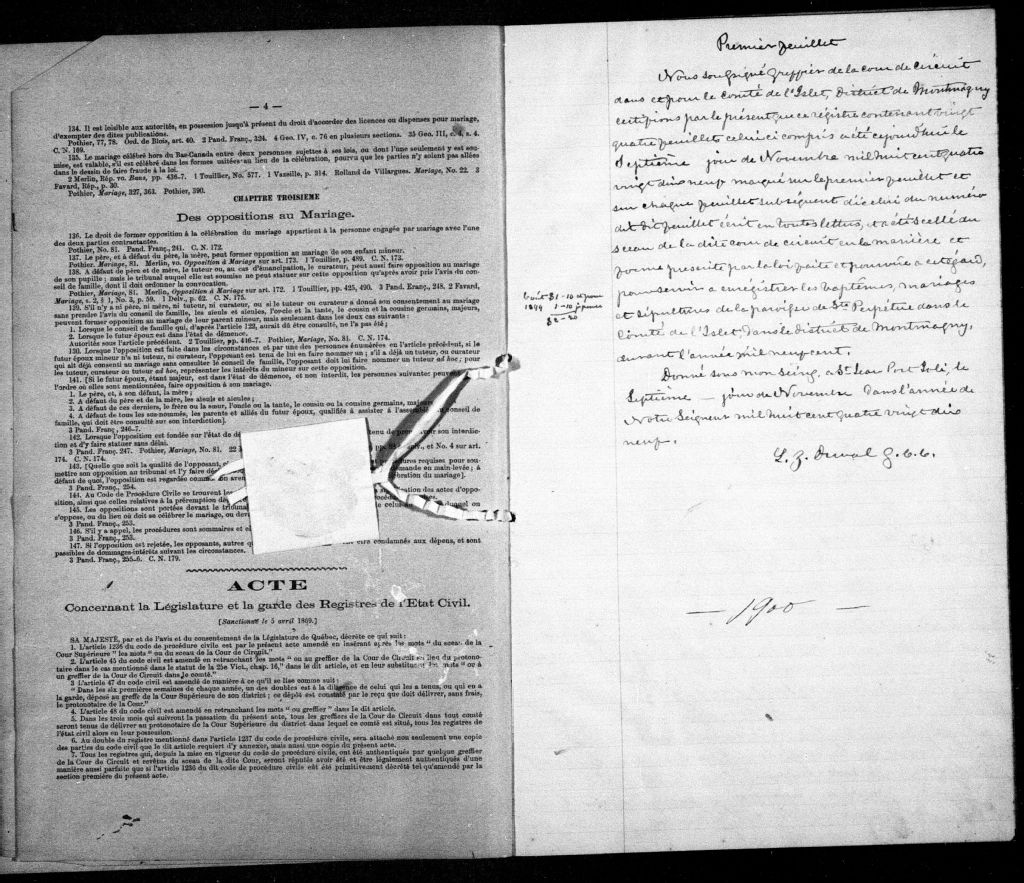 — 4 —
134. Il est loisible aux autorités, en possession jusqu'à présent du droit d'accorder des licences ou dispenses pour mariage,
d'exempter des dites publications.
Pothier, 77, 78. Ord. de Blois, art. 40. 2 Pand. Franç., 324. 4 Geo. IV, c. 76 en plusieurs sections. 35 Geo. III, c. 4, s. 4.
C. N. 169.
135. Le mariage célébré hors du Bas-Canada entre deux personnes sujettes à ses lois, ou dont l'une seulement y est sou-
mise, est valable, s'il est célébré dans les formes usitées au lieu de la célébration, pourvu que les parties n'y soient pas allées
dans le dessin de faire fraude à la loi.
2 Merlin, Rép. vo. Bans, pp. 436-7. 1 Touillier, No. 577. 1 Vazeille, p. 314. Rolland de Villargues. Mariage, No. 22. 3
Favard, Rép., p. 30.
Pothier, Mariage, 327, 363. Pothier, 390.
CHAPITRE TROISIEME
Des oppositions au Mariage.
136. Le droit de former opposition à la célébration du mariage appartient à la personne engagée par mariage avec l'une
des deux parties contractantes.
Pothier, No. 81. Pand. Franç., 241. C. N. 172.
137. Le père, et à défaut du père, la mère, peut former opposition au mariage de son enfant mineur.
Pothier. Mariage, 81. Merlin, vo. Opposition à Mariage sur art. 173. 1 Touillier, p. 489. C. N. 173.
138. A défaut de père et de mère, le tuteur ou, au cas d'émancipation, le curateur, peut aussi faire opposition au mariage
de son pupille; mais le tribunal auquel elle est soumise ne peut statuer sur cette opposition qu'après avoir pris l'avis du con-
seil de famille, dont il doit ordonner la convocation.
Pothier, Mariage, 81. Merlin, Opposition à Mariage sur art. 172. 1 Touillier, pp. 425, 490. 3 Pand. Franç., 248. 2 Favard,
Mariage, s. 2, § 1, No. 3, p. 59. 1 Delv., p. 62. C. N. 175.
139. S'il n'y a ni père, ni mère, ni tuteur, ni curateur, ou si le tuteur ou curateur a donné son consentement au mariage
sans prendre l'avis du conseil de famille, les aïeuls et aïeules, l'oncle et la tante, le cousin et la cousine germains, majeurs,
peuvent former opposition au mariage de leur parent mineur, mais seulement dans les deux cas suivants:
1. Lorsque le conseil de famille qui, d'après l'article 122, aurait dû être consulté, ne l'a pas été;
2. Lorsque le futur époux est dans l'état de démence.
Autorités sous l'article précédent. 2 Touillier, pp. 416-7. Pothier, Mariage, No. 81. C. N. 174.
130. Lorsque l'opposition est faite dans les circonstances et par une des personnes énumérées en l'article précédent, si le
futur époux mineur n'a ni tuteur, ni curateur, l'opposant est tenu de lui en faire nommer un; s'il a déjà un tuteur, ou curateur
qui ait déjà consenti au mariage sans consulter le conseil de famille, l'opposant doit lui faire nommer un tuteur ad hoc; pour
les tuteur, curateur ou tuteur ad hoc, représenter les intérêts du mineur sur cette opposition.
141. [Si le futur époux, étant majeur, est dans l'état de démence, et non interdit, les personnes suivantes peuvent
l'ordre où elles sont mentionnées, faire opposition à son mariage.
1. Le père, et, à son défaut, la mère;
2. A défaut du père et de la mère, les aïeuls et aïeules;
3. A défaut de ces derniers, le frère ou la sœur, l'oncle ou la tante, le cousin ou la cousine germains, majeurs
4. A défaut de tous les sus-nommés, les parents et alliés du futur époux, qualifiés à assister à l'assemblée du conseil de
famille, qui doit être consulté sur son interdiction]
3 Pand. Franç., 246-7.
142. Lorsque l'opposition est fondée sur l'état de dé tenu de pro son interdic-
tion et d'y faire statuer sans délai.
3 Pand. Franç. 247. Pothier, Mariage, No. 81. 22 pp. et No. 4 sur art.
174. C. N. 174.
143. [Quelque soit la qualité de l'opposant, ures requises pour sou-
mettre son opposition au tribunal et l'y faire dé mande en main-levée; à
défaut de quoi, l'opposition est regardée comme non aven ration du mariage].
3 Pand. Franç., 254.
144. Au Code de Procédure Civile se trouvent les cation des actes d'oppo-
sition, ainsi que celles relatives à la préremption de
145. Les oppositions sont portées devant le tribunal ce celui du quel on
s'oppose, ou du lieu où doit se célébrer le mariage, ou dev
3 Pand. Franç., 253.
146. S'il y a appel, les procédures sont sommaires et el
3 Pand. Franç., 253.
147. Si l'opposition est rejetée, les opposants, autres q être condamnés aux dépens, et sont
passibles de dommages-intérêts suivant les circonstances.
3 Pand. Franç., 255-6. C. N. 179.
ACTE
Concernant la Législature et la garde des Registres de l'Etat Civil.
[Sanctionné le 5 avril 1869.]
SA MAJESTÉ, par et de l'avis et du consentement de la Législature de Québec, décrète ce qui suit:
1. L'article 1236 du code de procédure civile est par le présent acte amendé en insérant après les mots " du sceau de la
Cour Supérieure " les mots " ou du sceau de la Cour de Circuit."
2. L'article 45 du code civil est amendé en retranchant les mots " ou au greffier de la Cour de Circuit au lieu du protono-
taire dans le cas mentionné dans le statut de la 25e Vict., chap. 16," dans le dit article, et en leur substituant les mots " ou à
un greffier de la Cour de Circuit dans le comté."
3 L'article 47 du code civil est amendé de manière à ce qu'il se lise comme suit:
" Dans les six premières semaines de chaque année, un des doubles est à la diligence de celui qui les a tenus, ou qui en a
la garde, déposé au greffe de la Cour Supérieure de son district; ce dépôt est constaté par le reçu que doit délivrer, sans frais,
le protonotaire de la Cour."
4. L'article 48 du code civil est amendé en retranchant les mots " ou greffier " dans le dit article.
5. Dans les trois mois qui suivront la passation du présent acte, tous les greffiers de la Cour de Circuit dans tout comté
seront tenus de délivrer au protonotaire de la Cour Supérieure du district dans lequel ce comté est situé, tous les registres de
l'état civil alors en leur possession.
6. Au double du registre mentionné dans l'article 1237 du code de procédure civile, sera attaché non seulement une copie
des parties du code civil que le dit article requiert d'y annexer, mais aussi une copie du présent acte.
7. Tous les registres qui, depuis la mise en vigueur du code de procédure civile, ont été authentiqués par quelque greffier
de la Cour de Circuit et revêtus du sceau de la dite Cour, seront réputés avoir été et être légalement authentiqués d'une
manière aussi parfaite que si l'article 1236 du dit code de procédure civile eût été primitivement décrété tel qu'amendé par la
section première du présent acte.
Premier feuillet
Nous soussigné Greffier de la cour de circuit
dans et pour le comté de l'Islet, District de Montmagny
certifions par le présent que ce registre contenant vingt
quatre feuillets celui ci compris a été ce jourd'hui le
Septième jour de Novembre mil huit cent quatre
vingt dix neuf marqué sur le premier feuillet et
sur chaque feuillet subséquent d'icelui du numéro
du dit feuillet écrit en toutes lettres, et a été scellé du
sceau de la dite cour de circuit en la manière et
forme prescrite par la loi faite et pourvue a cet égard,
pour servir a enregistrer les baptemes, mariages
et sépultures de la paroisse de Ste Perpétue dans le
Comté de l'Islet dans le District de Montmagny,
durant l'année mil neuf cent.
Donné sous mon seing, a St Jean Port Joli, le
Septième — jour de Novembre dans l'année de
Notre Seigneur mil huit cent quatre vingt dix
neuf.
L. Z. Duval G. C. C.
1899
— 1900 —